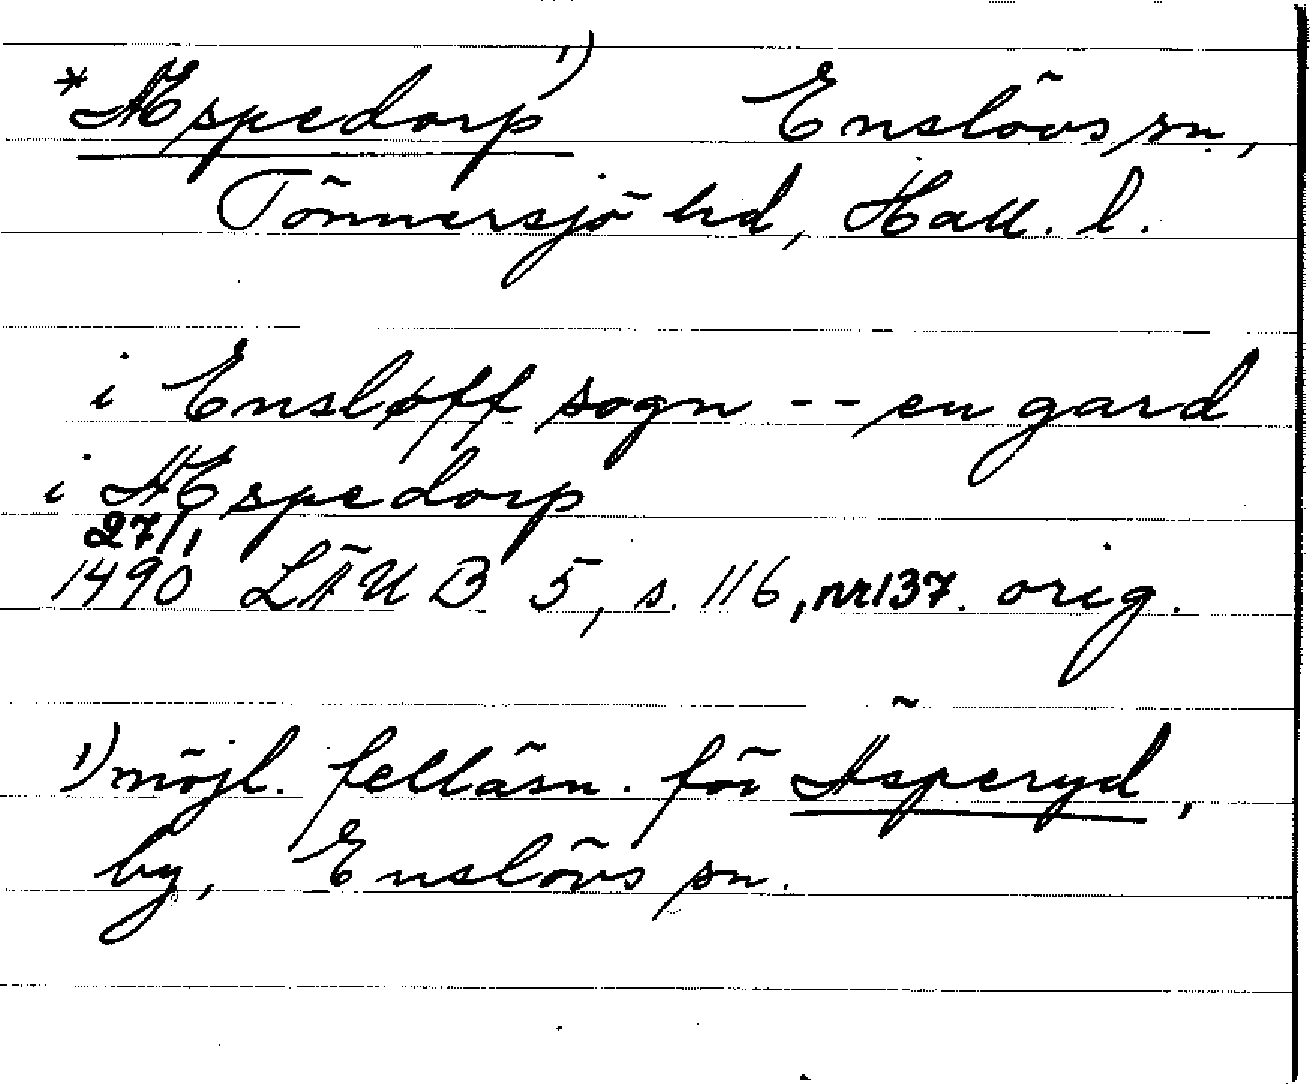 *Æspedorp 1) Enslövs sn,
Tönnersjö hd, Hall. l.
i Ensløff sogn -- en gard
i Æspedorp
27/1
1490 LÄUB 5, s. 116, nr 137. orig.
1) möjl. felläsn. för Äsperyd,
by, Enslövs sn.